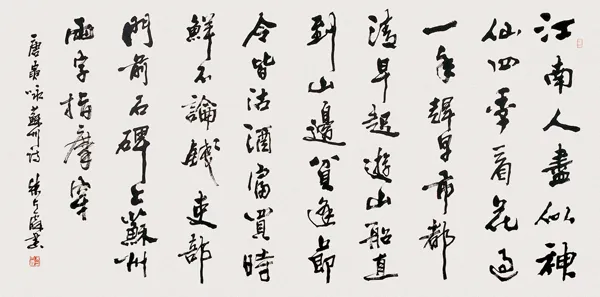 江南人盡似神
仙四季看花過
一年趕早市都
清早起遊山船直
到山邊貧逢節
令皆沽酒富買時
鮮不論錢吏部
門前石碑上蘇州
兩字指摩穿
唐寅咏蘇州诗 朱書